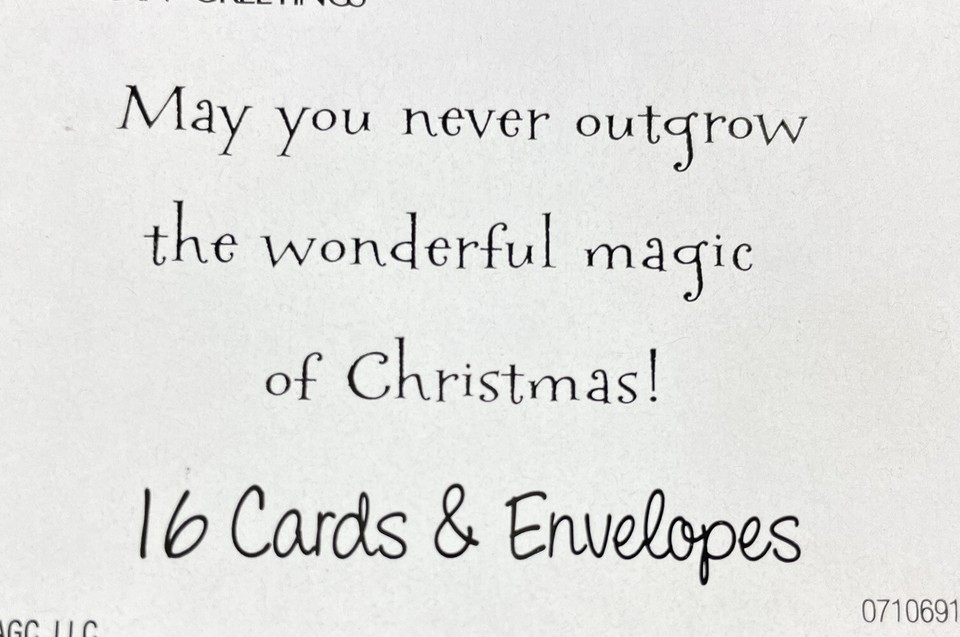 GREETINGS
May you never outgrow
the wonderful magic
of Christmas!
16 Cards & Envelopes
0710691
AGC, LLC